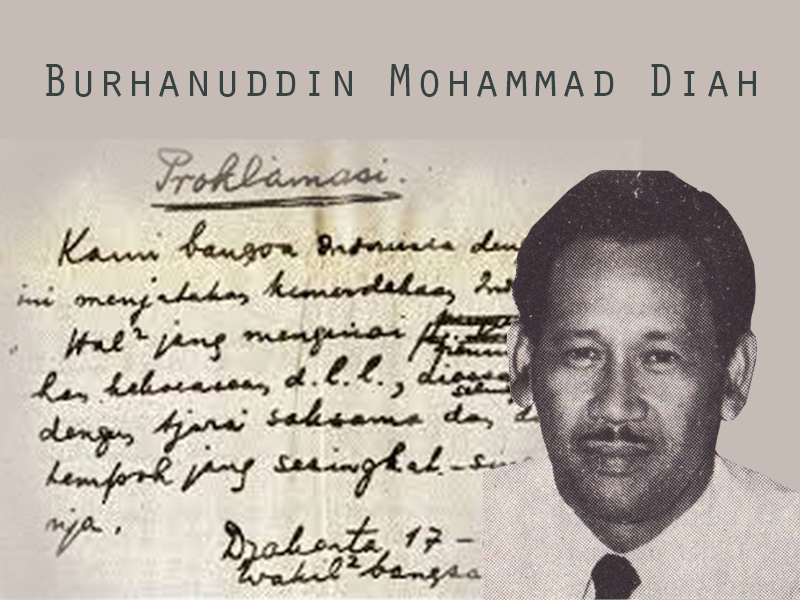 BURHANUDDIN MOHAMMAD DIAH
Proklamasi.
Kami bangsa Indonesia den
ini menjatakan kemerdekaan Ind
Hal² jang mengenai
kan kekoeasaan, d.l.l.,
dengan tjara saksama dan
tempoh jang sesingkat-sing
nja.
Djakarta, 17 -
Wakil² bangsa